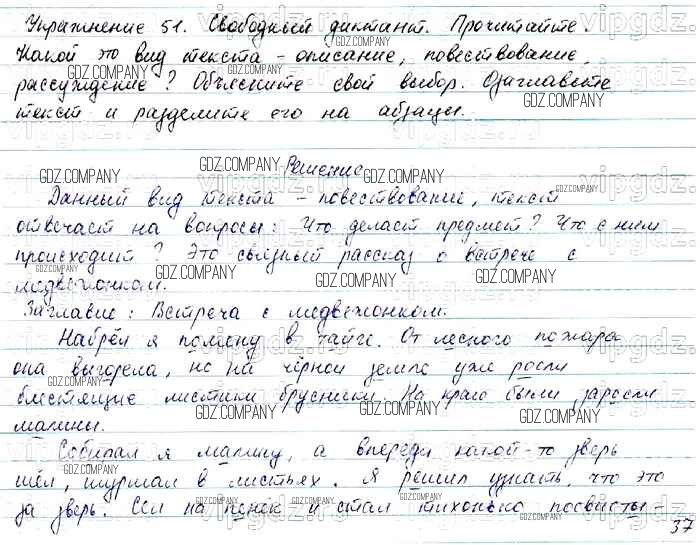 Упражнение 51. Свободный диктант. Прочитайте.
Какой это вид текста – описание, повествование,
рассуждение? Объясните свой выбор. Озаглавьте
текст и разделите его на абзацы.
Решение
Данный вид текста – повествование, текст
отвечает на вопросы: Что делает предмет? Что с ним
происходит? Это связный рассказ о встрече с
медвежонком.
Заглавие: Встреча с медвежонком.
Набрёл я поляну в тайге. От лесного пожара
она выгорела, но на чёрной земле уже росли
блестящие листики брусники. На краю были заросли
малины.
Собирал я малину, а впереди какой-то зверь
шёл, шуршал в листьях. Я решил узнать, что это
за зверь. Сел на пенёк и стал тихонько посвисты-
37